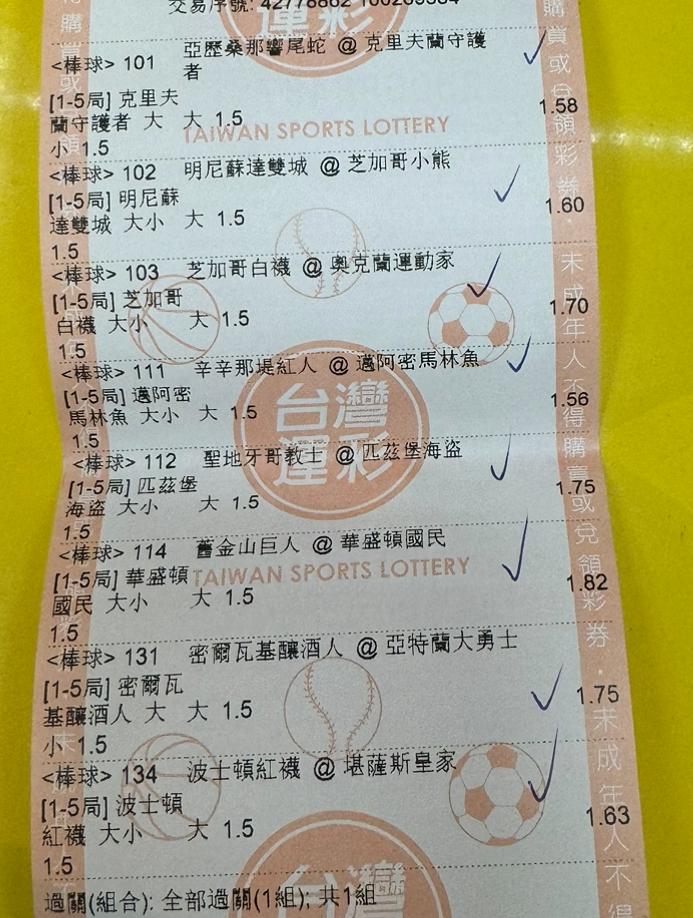 <棒球> 101 亞歷桑那響尾蛇 @ 克里夫蘭守護
者
[1-5局] 克里夫
蘭守護者 大 大 1.5
小 1.5
1.58
TAIWAN SPORTS LOTTERY
<棒球> 102 明尼蘇達雙城 @ 芝加哥小熊
[1-5局] 明尼蘇
達雙城 大小 大 1.5
1.5
1.60
<棒球> 103 芝加哥白襪 @ 奧克蘭運動家
[1-5局] 芝加哥
白襪 大小 大 1.5
1.5
1.70
<棒球> 111 辛辛那堤紅人 @ 邁阿密馬林魚
[1-5局] 邁阿密
馬林魚 大小 大 1.5
1.5
1.56
台灣
運彩
<棒球> 112 聖地牙哥教士 @ 匹茲堡海盜
[1-5局] 匹茲堡
海盜 大小 大 1.5
1.5
1.75
<棒球> 114 舊金山巨人 @ 華盛頓國民
[1-5局] 華盛頓
國民 大小 大 1.5
1.5
1.82
TAIWAN SPORTS LOTTERY
<棒球> 131 密爾瓦基釀酒人 @ 亞特蘭大勇士
[1-5局] 密爾瓦
基釀酒人 大 大 1.5
小 1.5
1.75
<棒球> 134 波士頓紅襪 @ 堪薩斯皇家
[1-5局] 波士頓
紅襪 大小 大 1.5
1.5
1.63
過關(組合): 全部過關(1組); 共1組
購買或兌領彩券．未成年人不得購買或兌領彩券．未成年人不得